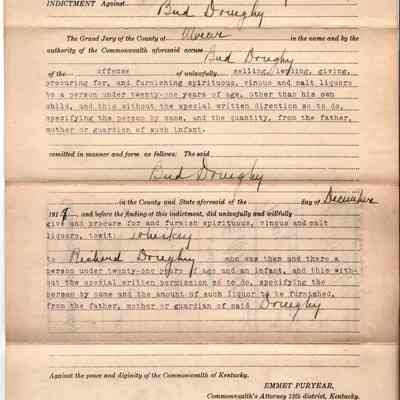 INDICTMENT Against
Bud Doughy
The Grand Jury of the County of Mercer in the name and by the
authority of the Commonwealth aforesaid accuse Bud Doughy
of the offense of unlawfully selling, lending, giving,
procuring for, and furnishing spirituous, vinous and malt liquors
to a person under twenty-one years of age, other than his own
child, and this without the special written direction so to do,
specifying the person by name, and the quantity, from the father,
mother or guardian of such infant.
committed in manner and form as follows: The said
Bud Doughy
in the County and State aforesaid of the day of December
191 , and before the finding of this indictment, did unlawfully and willfully
give and procure for and furnish spirituous, vinous and malt
liquors, towit; whiskey
to Richard Doughy who was then and there a
person under twenty-one years of age and an infant, and this with-
out the special written permission so to do, specifying the
person by name and the amount of such liquor to be furnished,
from the father, mother or guardian of said Doughy
Against the peace and diginity of the Commonwealth of Kentucky.
EMMET PURYEAR,
Commonwealth's Attorney 13th district, Kentucky.